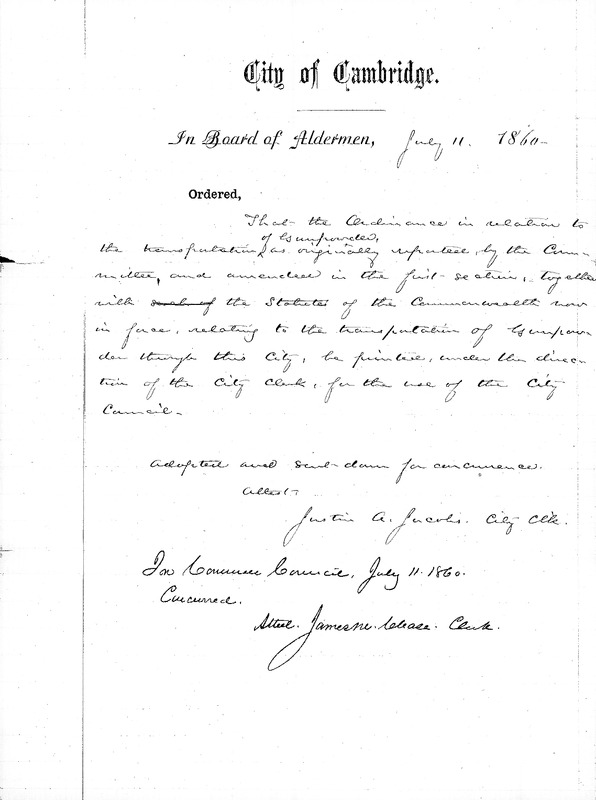 City of Cambridge.
In Board of Aldermen, July 11. 1860-
Ordered,
That the Ordinance in relation to
of Gunpowder,
the transportation, as originally reported, by the Com-
mittee, and amended in the first section, together
with such of the Statutes of the Commonwealth now
in force, relating to the transportation of Gunpow-
der through this City, be printed, under the direc-
tion of the City Clerk, for the use of the City
Council-
Adopted and sent down for concurrence.
Attest-
Justin A. Jacobs. City Clk.
In Common Council, July 11. 1860.
Concurred.
Attest. James M. Chase. Clerk.